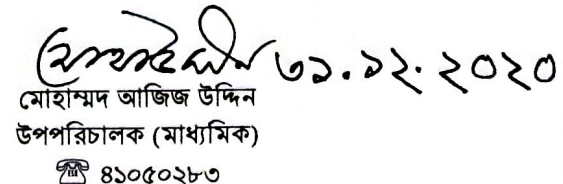 ৩১.১২.২০২০
মোহাম্মদ আজিজ উদ্দিন
উপপরিচালক (মাধ্যমিক)
☎ ৪১০৫০২৮৩